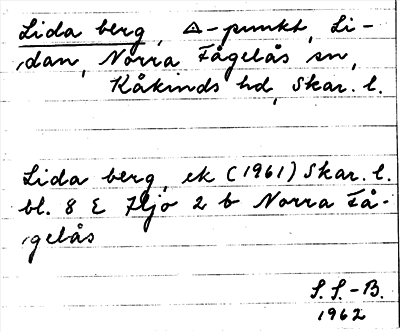 Lida berg, △-punkt, Li-
dan, Norra Fågelås sn,
Kåkinds hd, Skar. l.
Lida berg, ek (1961) Skar. l.
bl. 8 E Hjo 2 b Norra Få-
gelås
S. S.-B.
1962